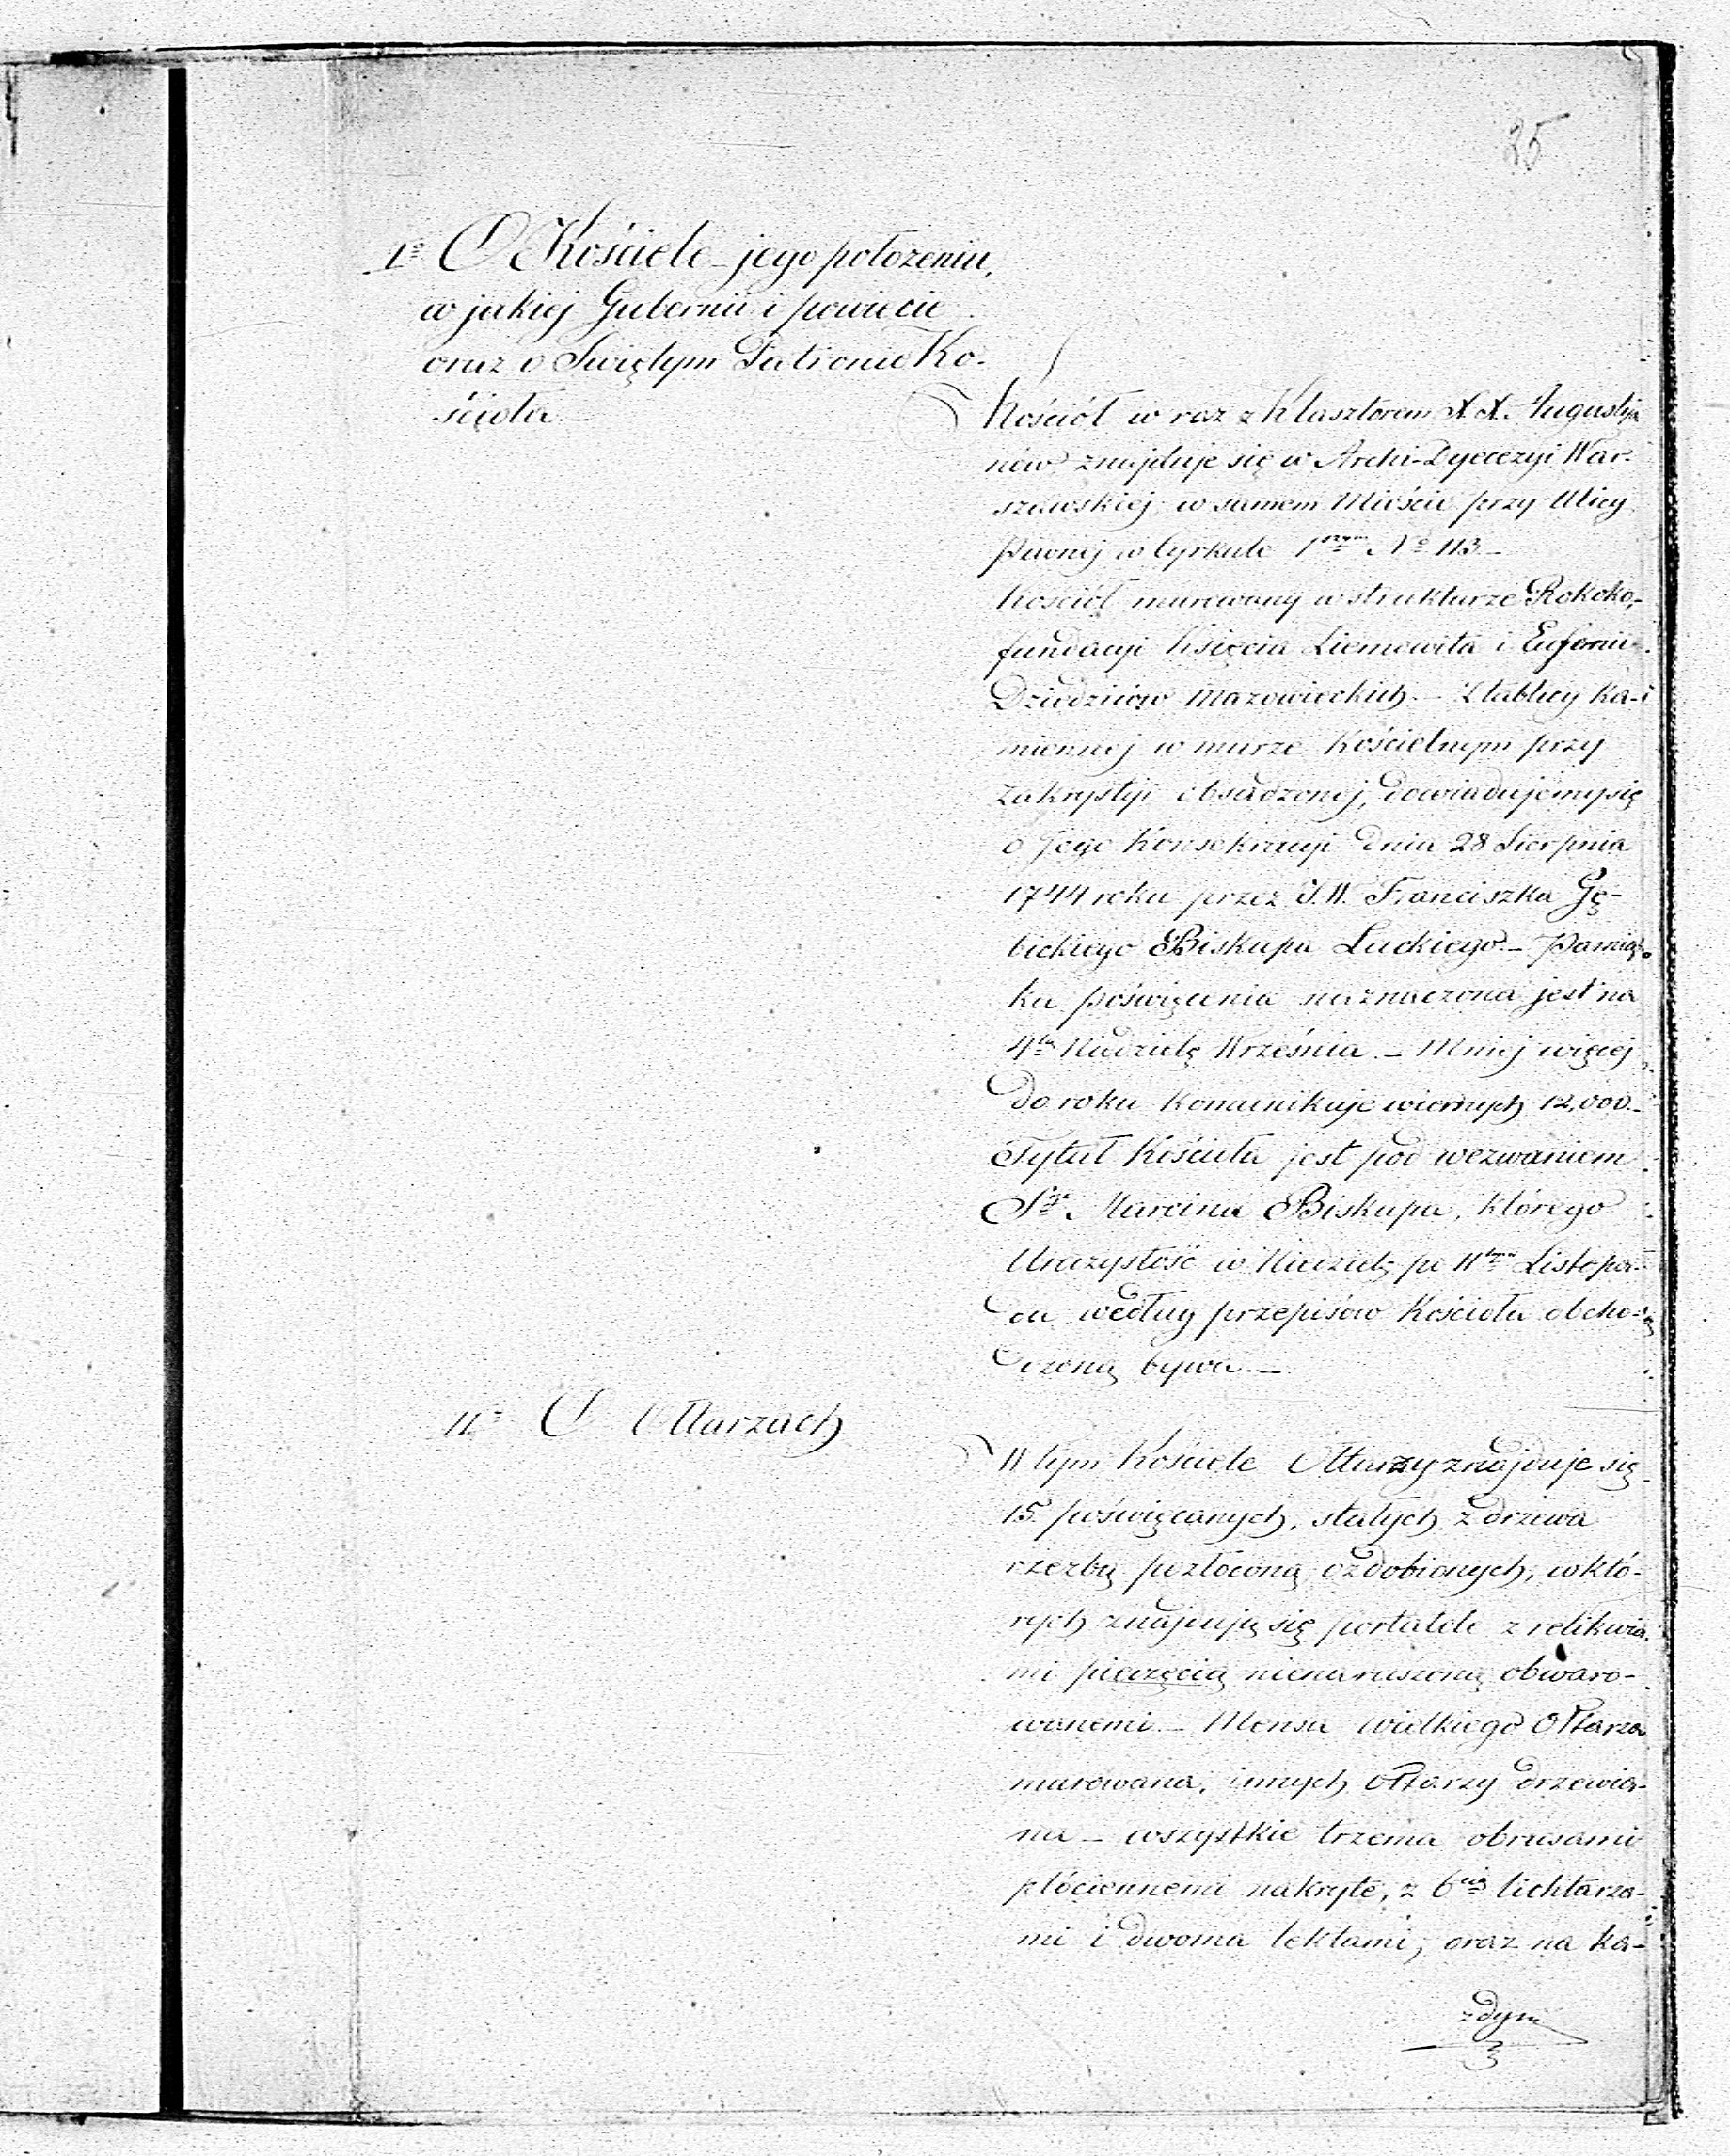 25
1º O Kościele jego położeniu,
w jakiej Gubernii i powiecie
oraz o Świętym Patronie Ko-
ścioła.—
Kościół w raz z Klasztorem X.X. Augustja
nów znajduje się w Archi-Dyecezyi War-
szawskiej w samem Mieście przy Ulicy
Piwnej w Cyrkule 1szym Nº 113.—
Kościół murowany w strukturze Rokoko,
fundacyi Księcia Ziemowita i Eufemii
Dziedziców Mazowieckich.— Z tablicy Ka-
miennej w murze Kościelnym przy
Zakrystyi obsadzonej, dowiadujemy się
o jego Konsekracyi dnia 28 Sierpnia
1744 roku przez J.W. Franciszka Gę-
bickiego Biskupa Łuckiego.— Pamiąt-
ka poświęcenia naznaczona jest na
4tą Niedzielę Września.— Mniej więcej
do roku Komunikuje wiernych 12,000.—
Tytuł Kościoła jest pod wezwaniem
Sgo Marcina Biskupa, którego
Uroczystość w Niedzielę po 11tym Listopa-
da według przepisów Kościoła obcho-
dzoną bywa.—
II. O Ołtarzach
W tym Kościele Ołtarzy znajduje się
15. poświęcanych, stałych z drzewa
rzezbą pozłoconą ozdobionych, w któ-
rych znajdują się portatele z relikwia-
mi pieczęcią nienaruszoną obwaro-
wanemi.— Mensa wielkiego Ołtarza
murowana, innych ołtarzy drzewia-
na — wszystkie trzema obrusami
płóciennemi nakryte, z 6cią lichtarza-
mi i dwoma lektami, oraz na ka-
zdym